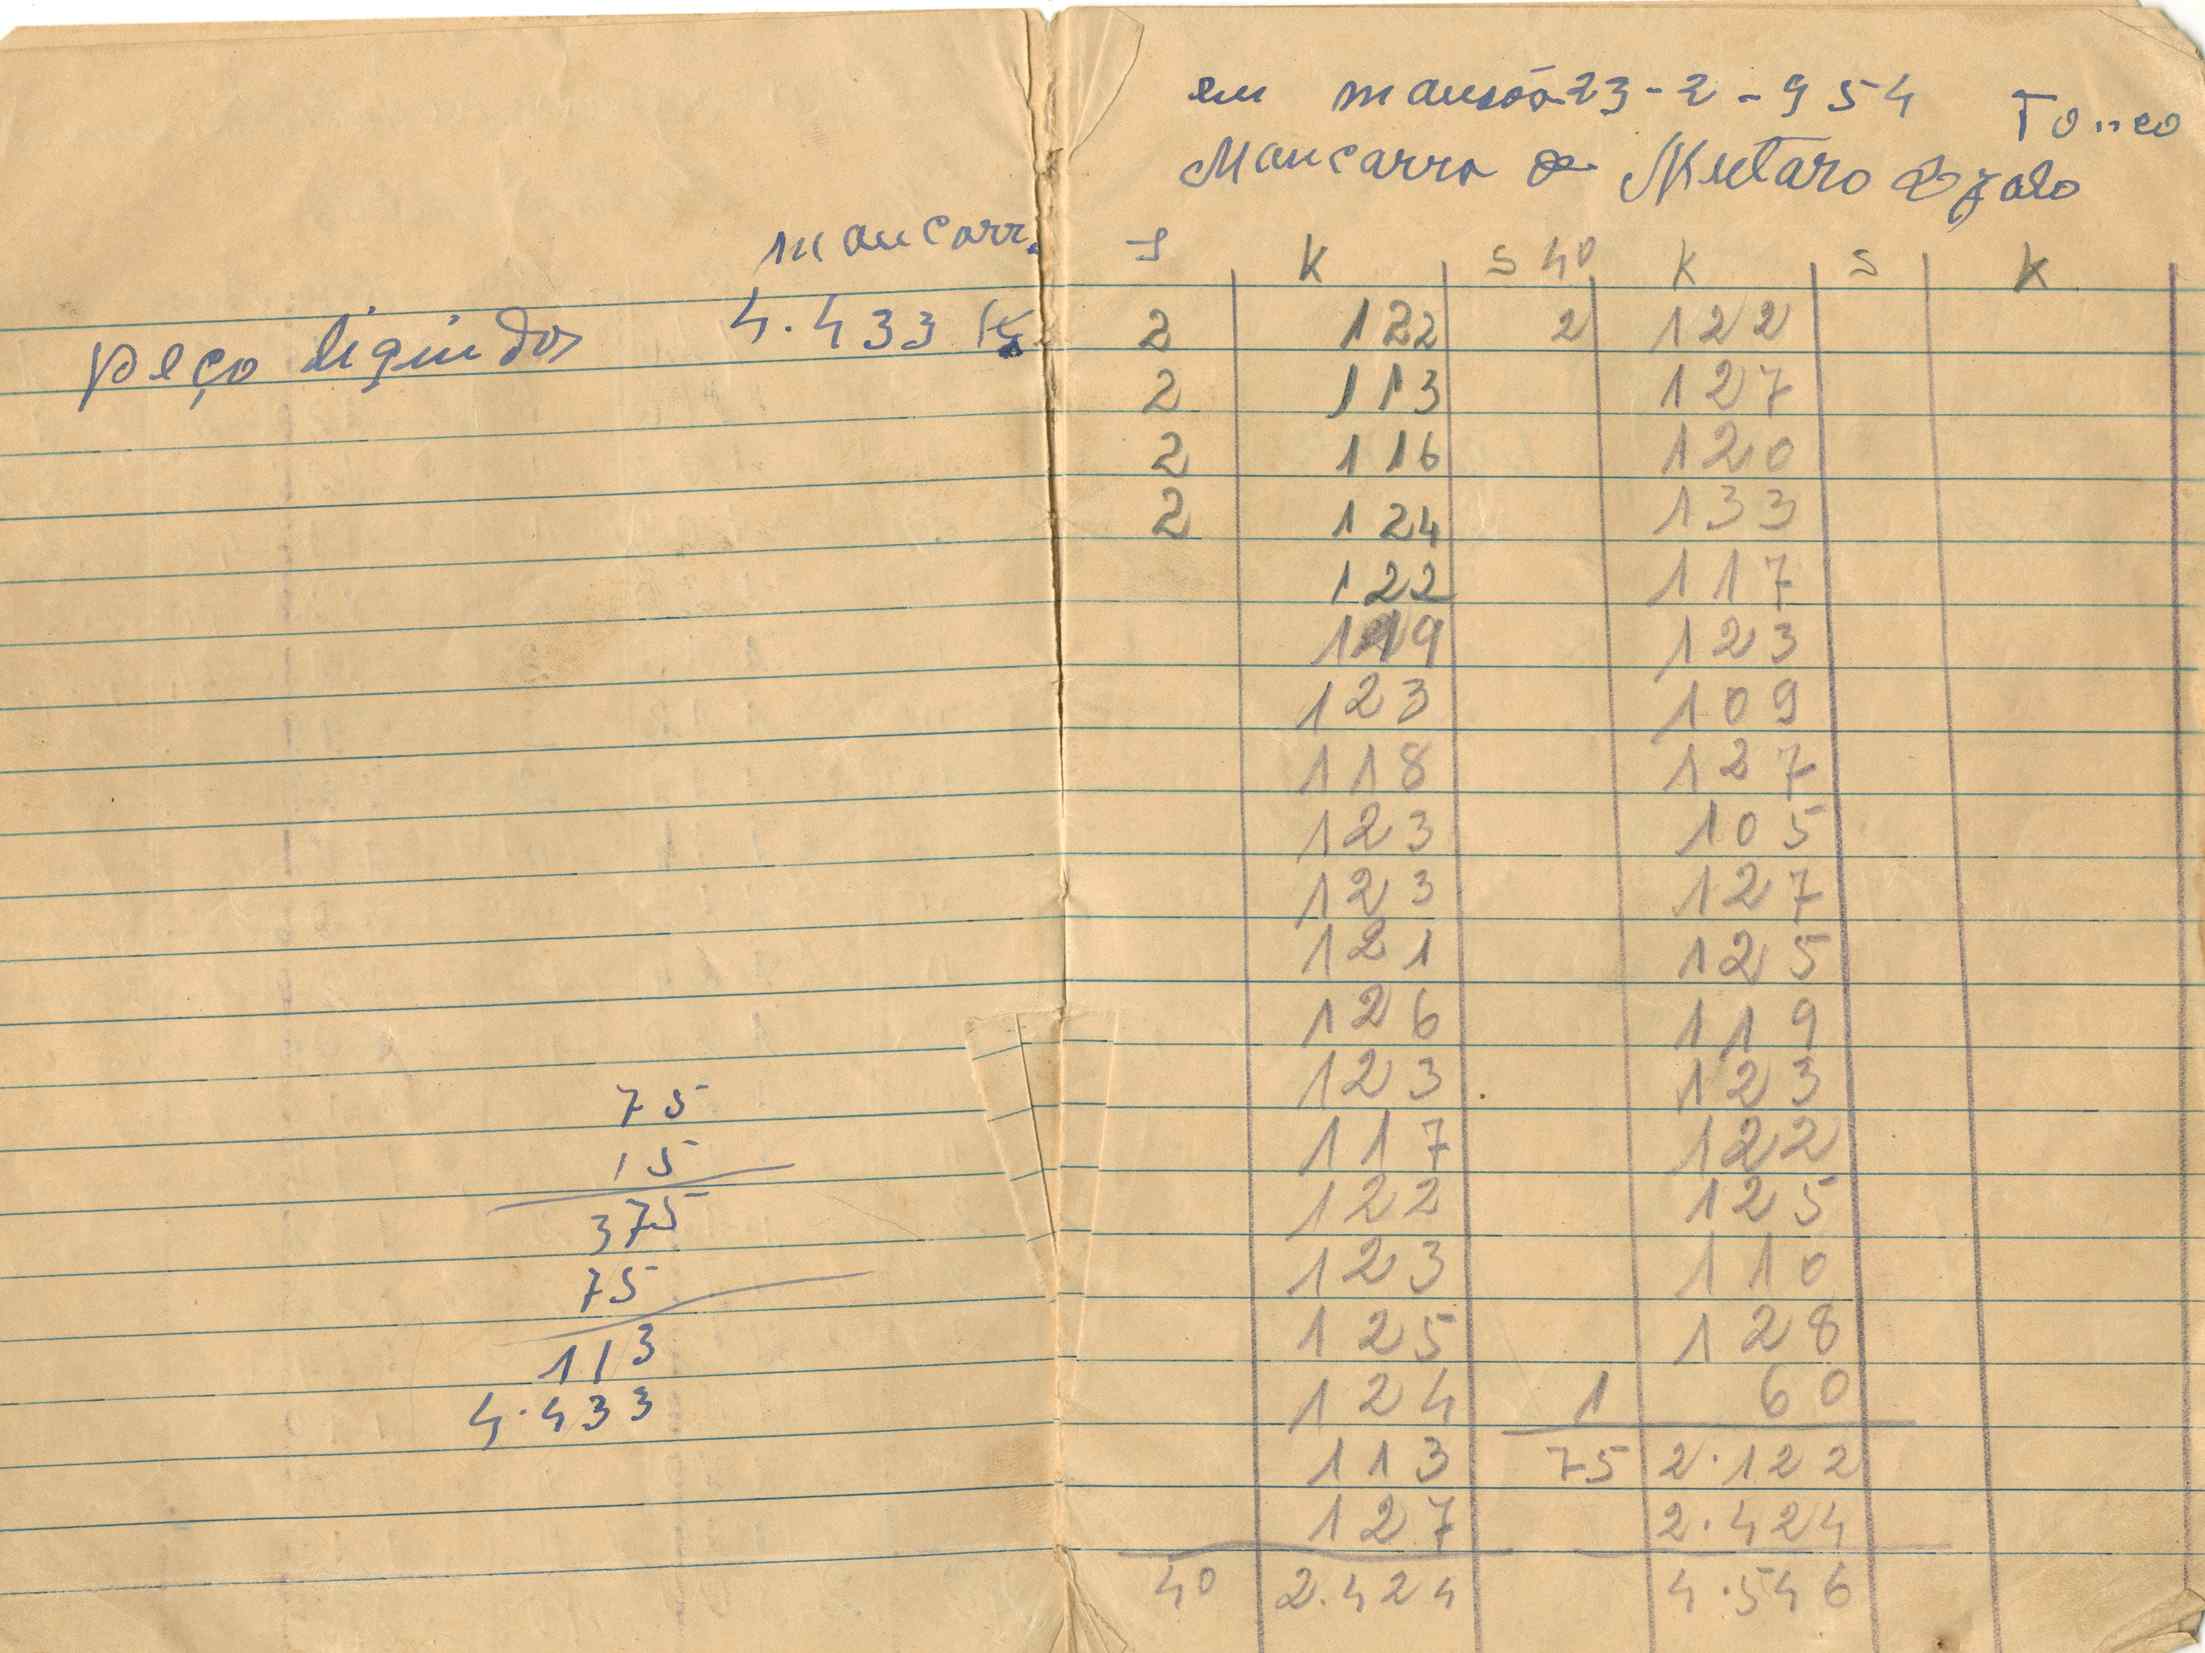 mancarr.
peço liquidos 4.433 K
75
15
375
75
113
4.433
em mansôa 23-2-954
Mancarra de
S K S 40 K S K
2 122 2 122
2 113 127
2 116 120
2 124 133
122 117
119 123
123 109
118 127
123 105
123 127
121 125
126 119
123 123
117 122
122 125
123 110
125 128
124 1 60
113 75 2.122
127 2.424
40 2.424 4.546